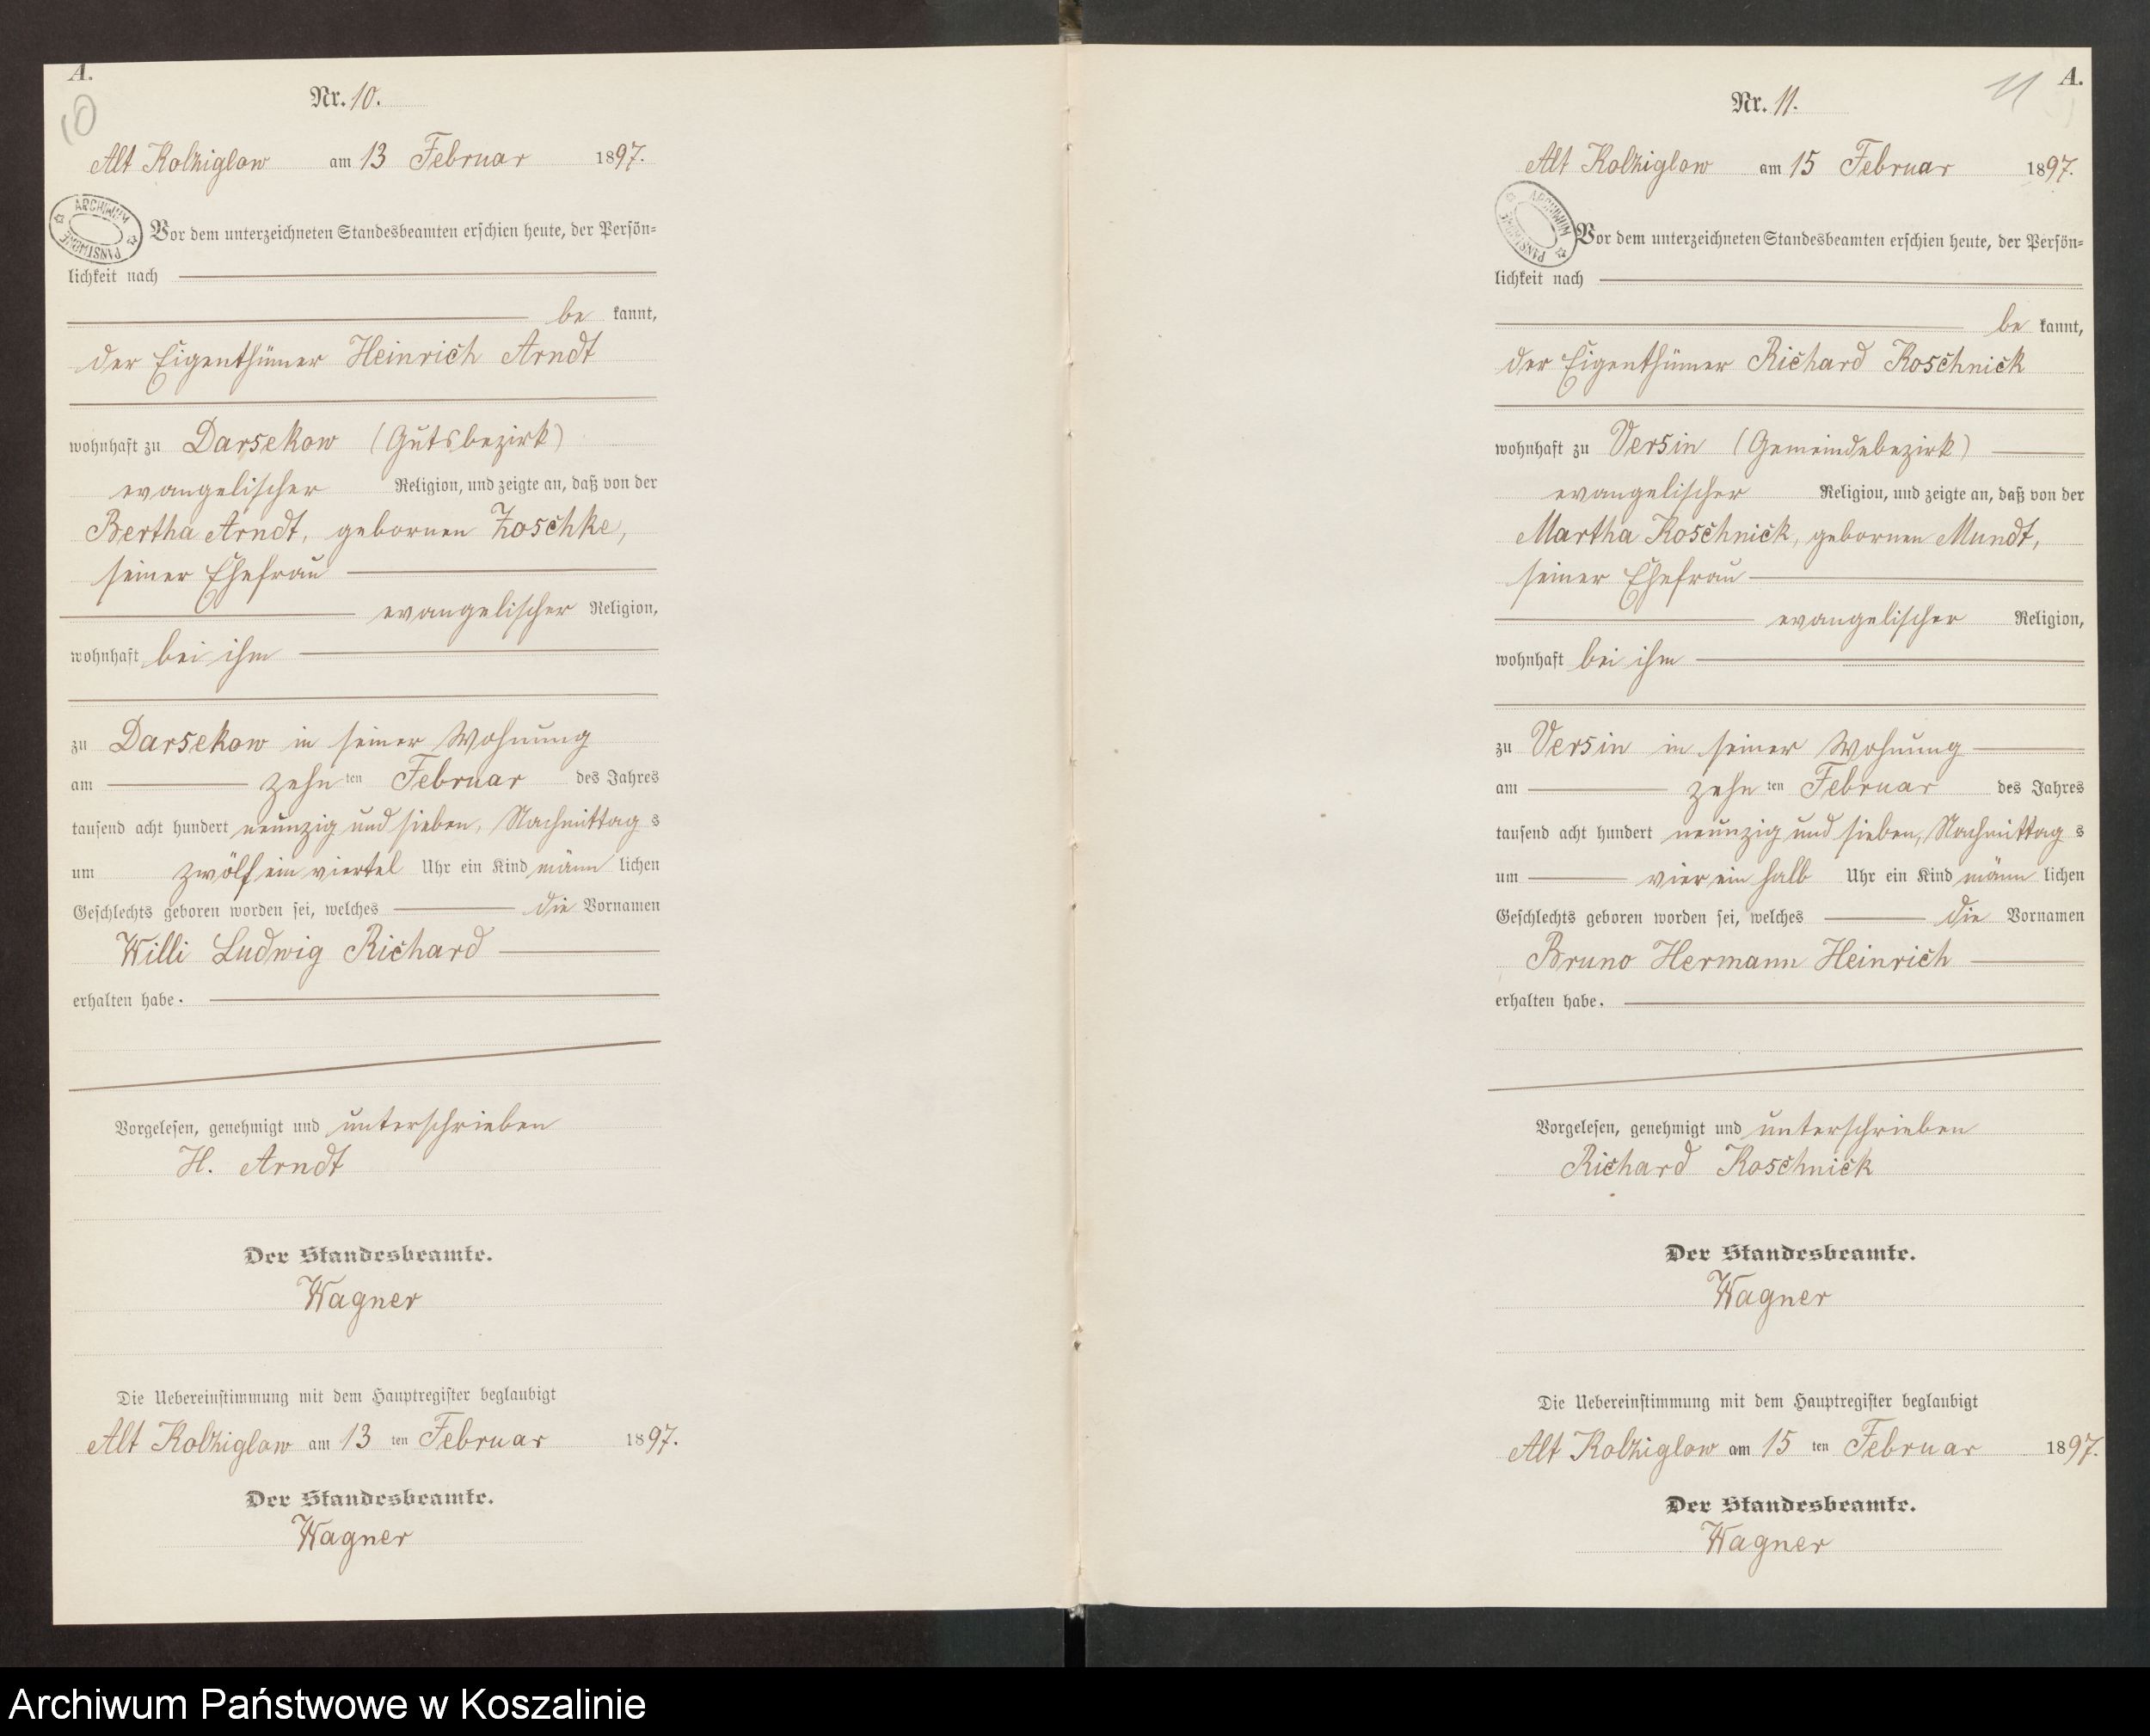 A.
10
Nr. 10.
Alt Kolziglow am 13 Februar 1897.
ARCHIWUM PAŃSTWOWE
Vor dem unterzeichneten Standesbeamten erschien heute, der Persön-
lichkeit nach
be kannt,
der Eigenthümer Heinrich Arndt
wohnhaft zu Darsekow (Gutsbezirk)
evangelischer Religion, und zeigte an, daß von der
Bertha Arndt, gebornen Zoschke,
seiner Ehefrau
evangelischer Religion,
wohnhaft bei ihm
zu Darsekow in seiner Wohnung
am zehn ten Februar des Jahres
tausend acht hundert neunzig und sieben, Nachmittag s
um zwölf ein viertel Uhr ein Kind männ lichen
Geschlechts geboren worden sei, welches die Vornamen
Willi Ludwig Richard
erhalten habe.
Vorgelesen, genehmigt und unterschrieben
H. Arndt
Der Standesbeamte.
Wagner
Die Uebereinstimmung mit dem Hauptregister beglaubigt
Alt Kolziglow am 13 ten Februar 1897.
Der Standesbeamte.
Wagner
11 A.
Nr. 11.
Alt Kolziglow am 15 Februar 1897.
ARCHIWUM PAŃSTWOWE
Vor dem unterzeichneten Standesbeamten erschien heute, der Persön-
lichkeit nach
be kannt,
der Eigenthümer Richard Koschnick
wohnhaft zu Versin (Gemeindebezirk)
evangelischer Religion, und zeigte an, daß von der
Martha Koschnick, gebornen Mundt,
seiner Ehefrau
evangelischer Religion,
wohnhaft bei ihm
zu Versin in seiner Wohnung
am zehn ten Februar des Jahres
tausend acht hundert neunzig und sieben, Nachmittag s
um vier ein halb Uhr ein Kind männ lichen
Geschlechts geboren worden sei, welches die Vornamen
Bruno Hermann Heinrich
erhalten habe.
Vorgelesen, genehmigt und unterschrieben
Richard Koschnick
Der Standesbeamte.
Wagner
Die Uebereinstimmung mit dem Hauptregister beglaubigt
Alt Kolziglow am 15 ten Februar 1897.
Der Standesbeamte.
Wagner
Archiwum Państwowe w Koszalinie